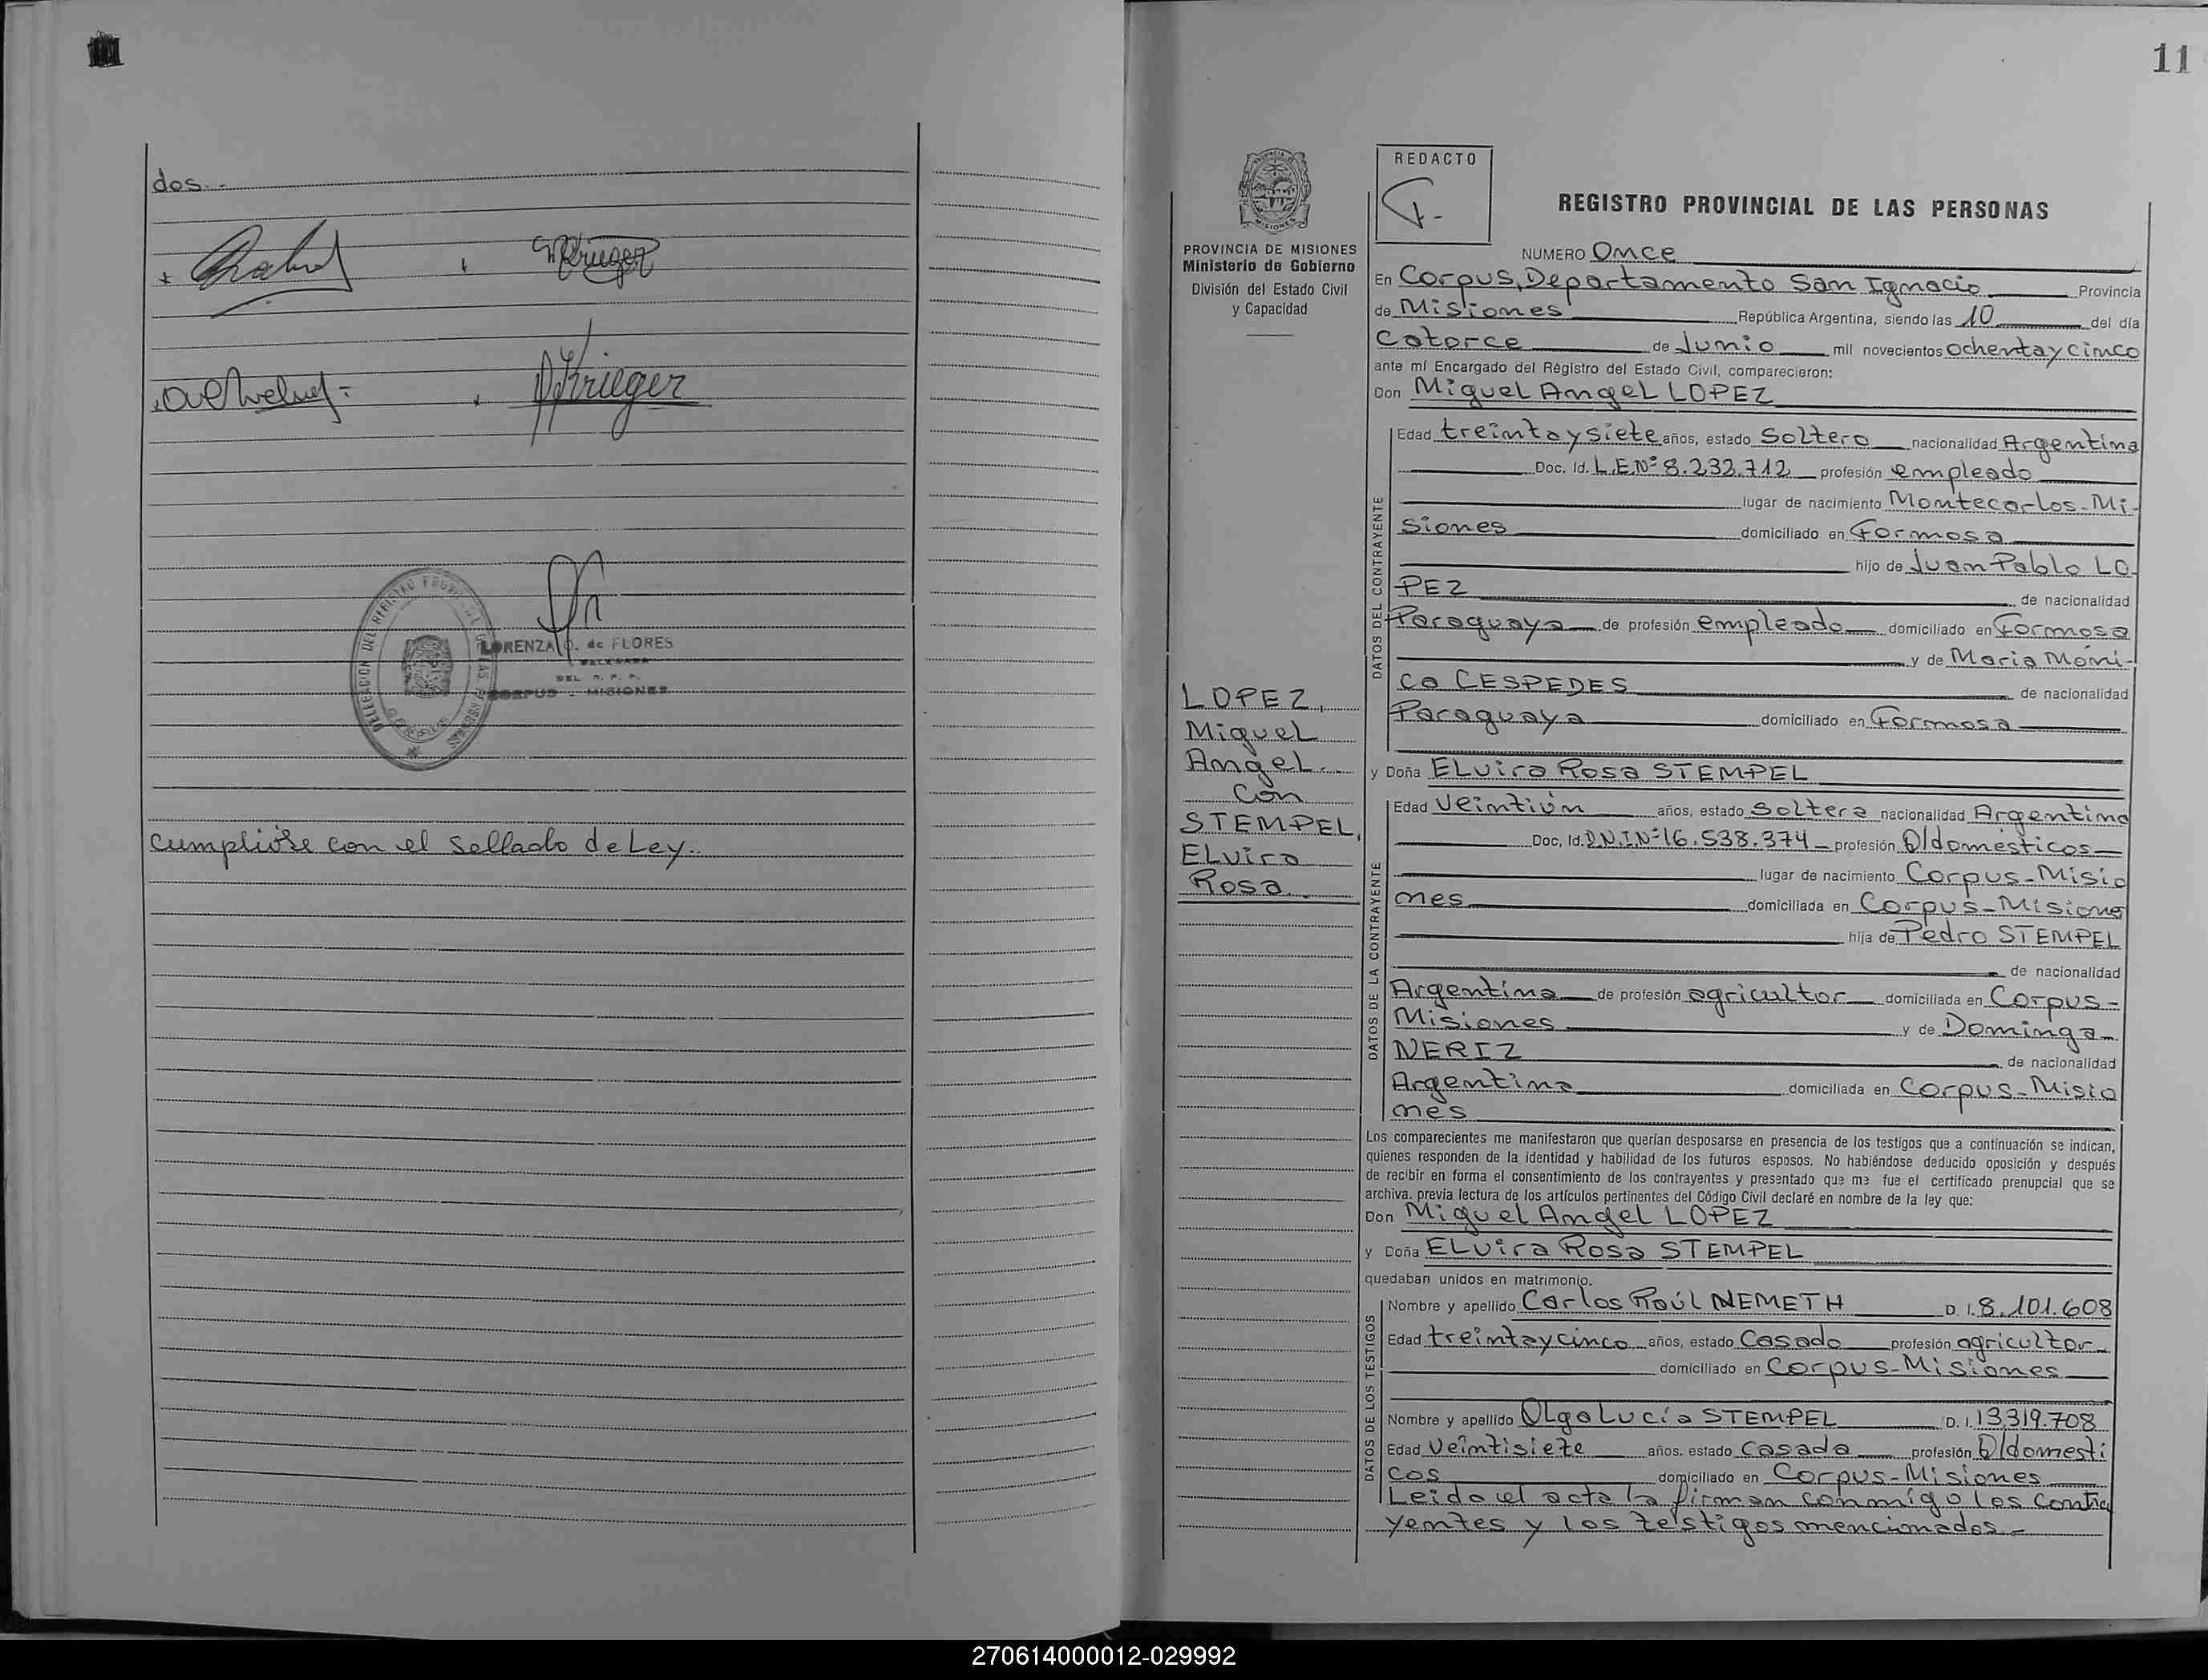 dos.-
Krieger
Krieger
DELEGACION DEL REGISTRO PROVINCIAL DE LAS PERSONAS
LORENZA O. de FLORES
DELEGADA
DEL R. P. P.
CORPUS - MISIONES
Cumplióse con el Sellado de Ley.-
11
PROVINCIA DE MISIONES
Ministerio de Gobierno
División del Estado Civil
y Capacidad
LOPEZ,
Miguel
Angel.-
Con
STEMPEL,
ELvira
Rosa.
REDACTO
REGISTRO PROVINCIAL DE LAS PERSONAS
NUMERO Once
En Corpus, Departamento San Ignacio Provincia
de Misiones República Argentina, siendo las 10 del día
Catorce de Junio mil novecientos ochenta y cinco
ante mí Encargado del Registro del Estado Civil, comparecieron:
Don Miguel Angel LOPEZ
DATOS DEL CONTRAYENTE
Edad treinta y siete años, estado Soltero nacionalidad Argentina
Doc. Id. L.E.Nº 8.232.712 profesión empleado
lugar de nacimiento Montecarlos-Mi-
siones domiciliado en Formosa
hijo de Juan Pablo LO-
PEZ de nacionalidad
Paraguaya de profesión empleado domiciliado en Formosa
y de Maria Móni-
ca CESPEDES de nacionalidad
Paraguaya domiciliado en Formosa
y Doña ELvira Rosa STEMPEL
DATOS DE LA CONTRAYENTE
Edad Veintiún años, estado Soltera nacionalidad Argentina
Doc. Id. D.N.I.Nº 16.538.374 profesión Q/domésticos
lugar de nacimiento Corpus-Misio
nes domiciliada en Corpus-Misiones
hija de Pedro STEMPEL
de nacionalidad
Argentina de profesión agricultor domiciliada en Corpus-
Misiones y de Dominga
NERIZ de nacionalidad
Argentina domiciliada en Corpus-Misio
nes
Los comparecientes me manifestaron que querían desposarse en presencia de los testigos que a continuación se indican,
quienes responden de la identidad y habilidad de los futuros esposos. No habiéndose deducido oposición y después
de recibir en forma el consentimiento de los contrayentes y presentado que me fue el certificado prenupcial que se
archiva. previa lectura de los artículos pertinentes del Código Civil declaré en nombre de la ley que:
Don Miguel Angel LOPEZ
y Doña ELvira Rosa STEMPEL
quedaban unidos en matrimonio.
DATOS DE LOS TESTIGOS
Nombre y apellido Carlos Raúl NEMETH D. I. 8.101.608
Edad treinta y cinco años, estado Casado profesión agricultor
domiciliado en Corpus-Misiones
Nombre y apellido Olga Lucía STEMPEL D. I. 13.319.708
Edad Veintisiete años. estado Casada profesión Q/domesti
cos domiciliado en Corpus-Misiones
Leida el acta la firman conmigo los contra
yentes y los testigos mencionados.-
270614000012-029992